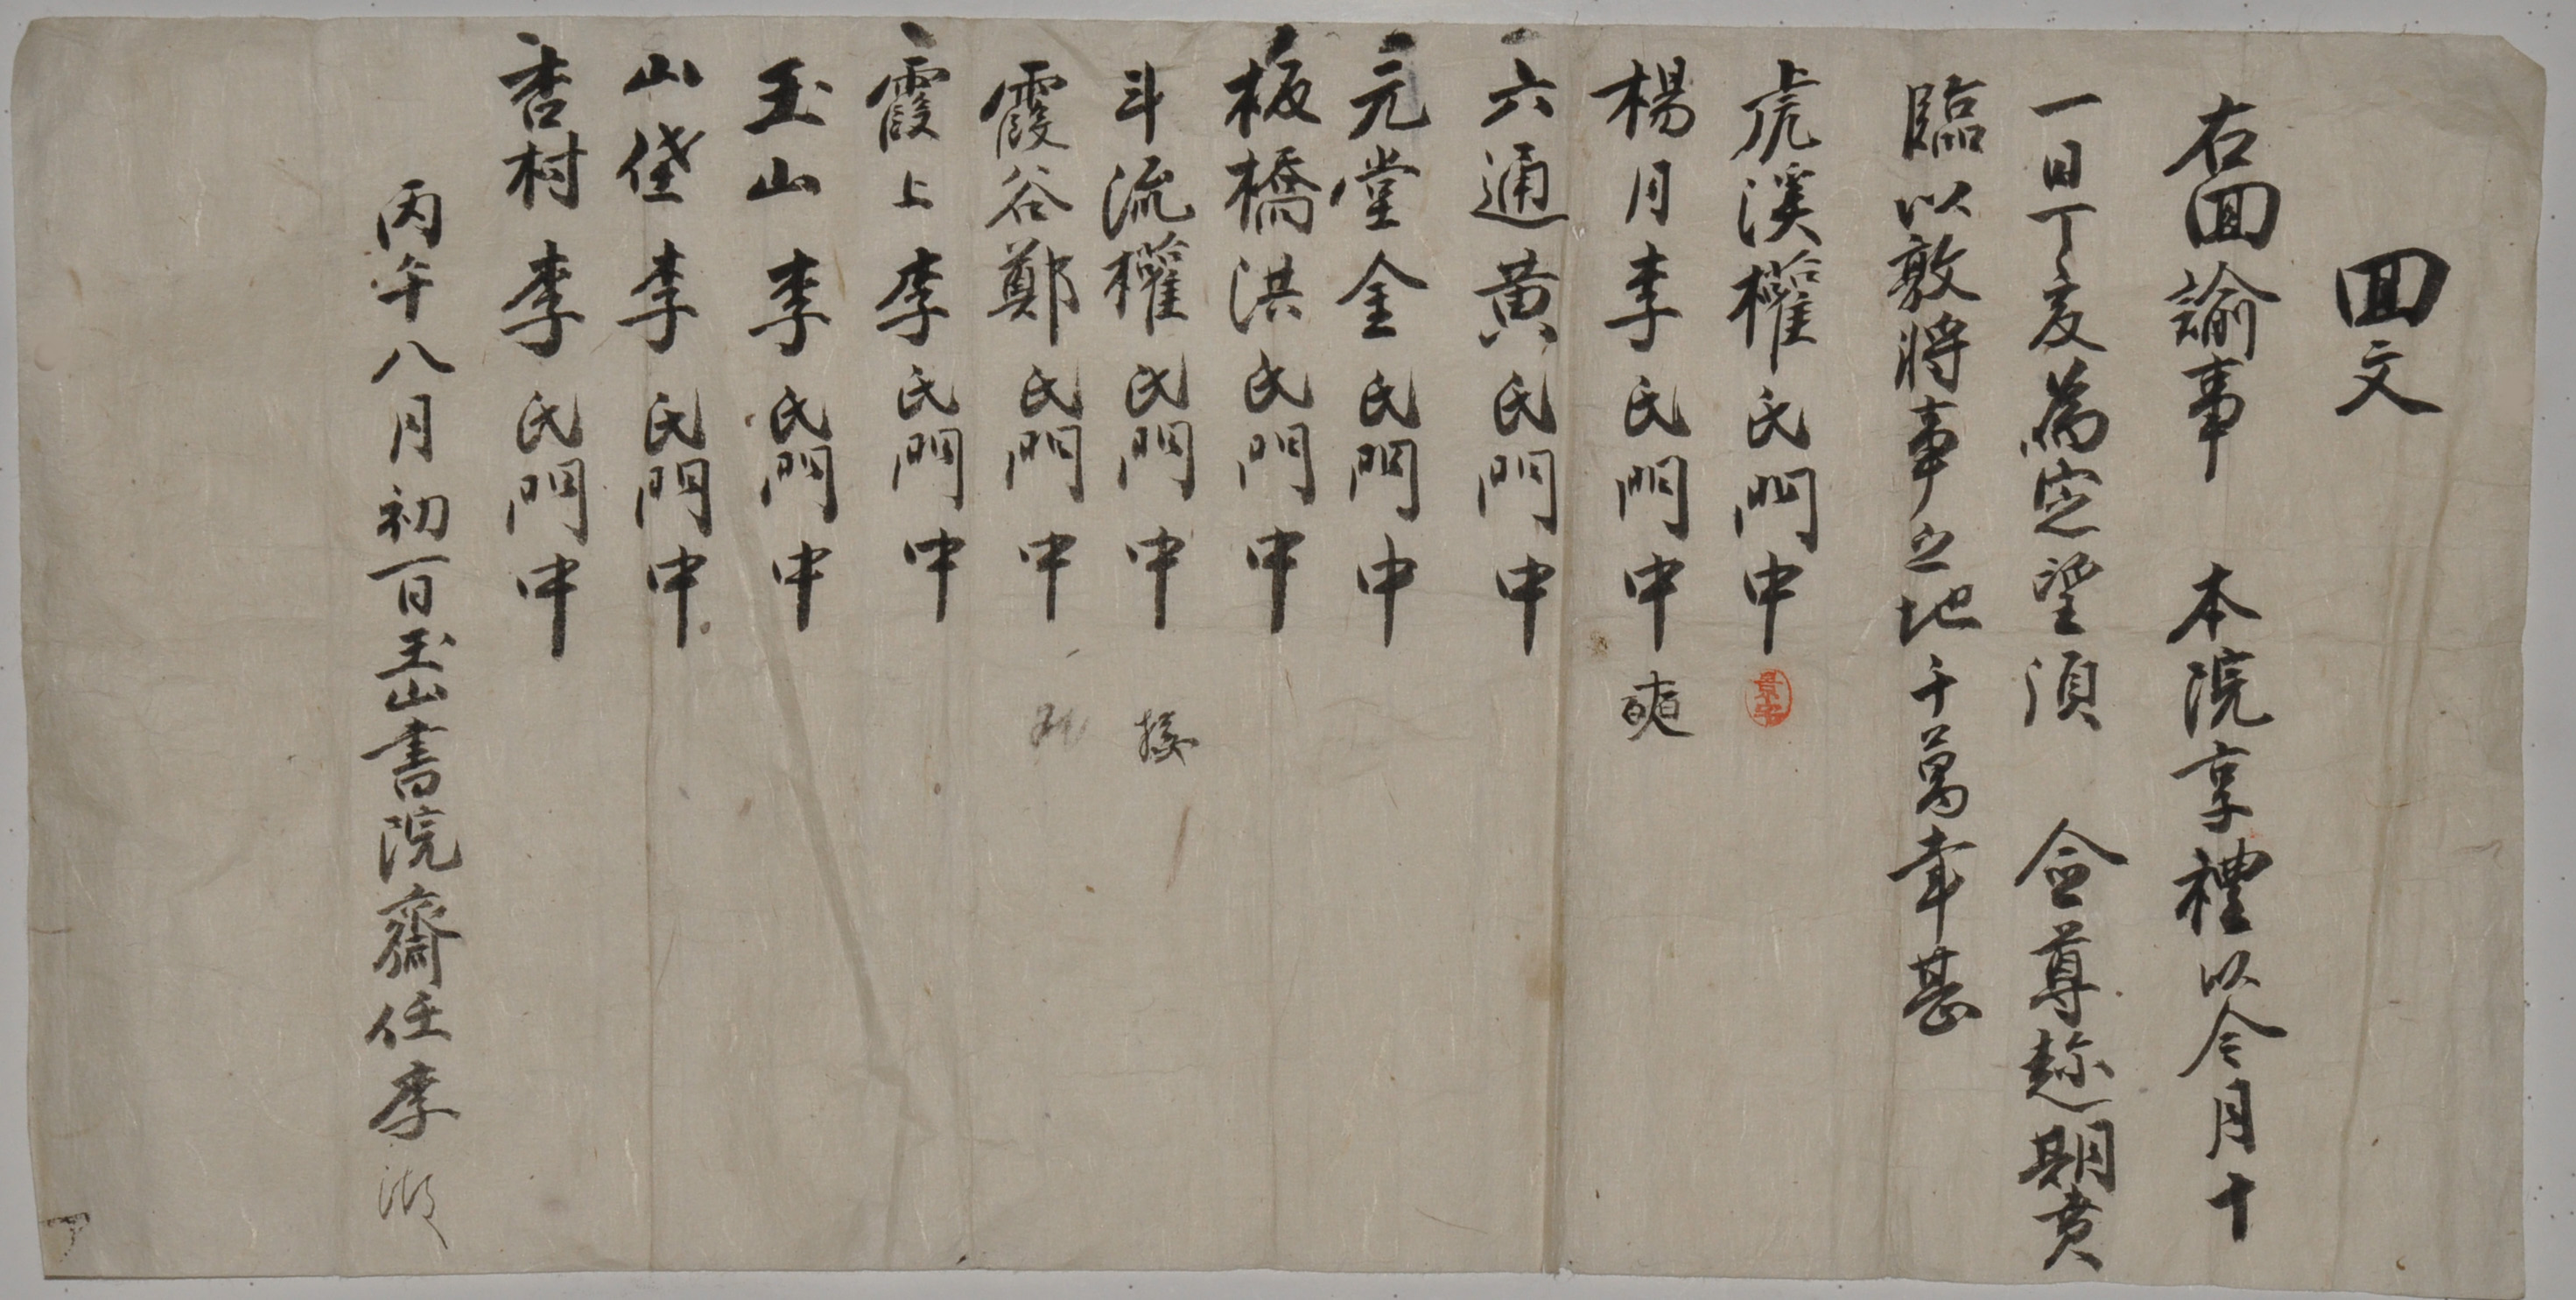 回文
右回諭事 本院享禮以今月十
一日丁亥爲定望須 僉尊趂期賁
臨以敦將事之地千萬幸甚
虎溪權氏門中
楊月李氏門中 奭
六通黃氏門中
元堂金氏門中
板橋洪氏門中
斗流權氏門中 接
霞谷鄭氏門中
霞上李氏門中
玉山李氏門中
山垈李氏門中
香村李氏門中
丙午八月初一日玉山書院齋任李